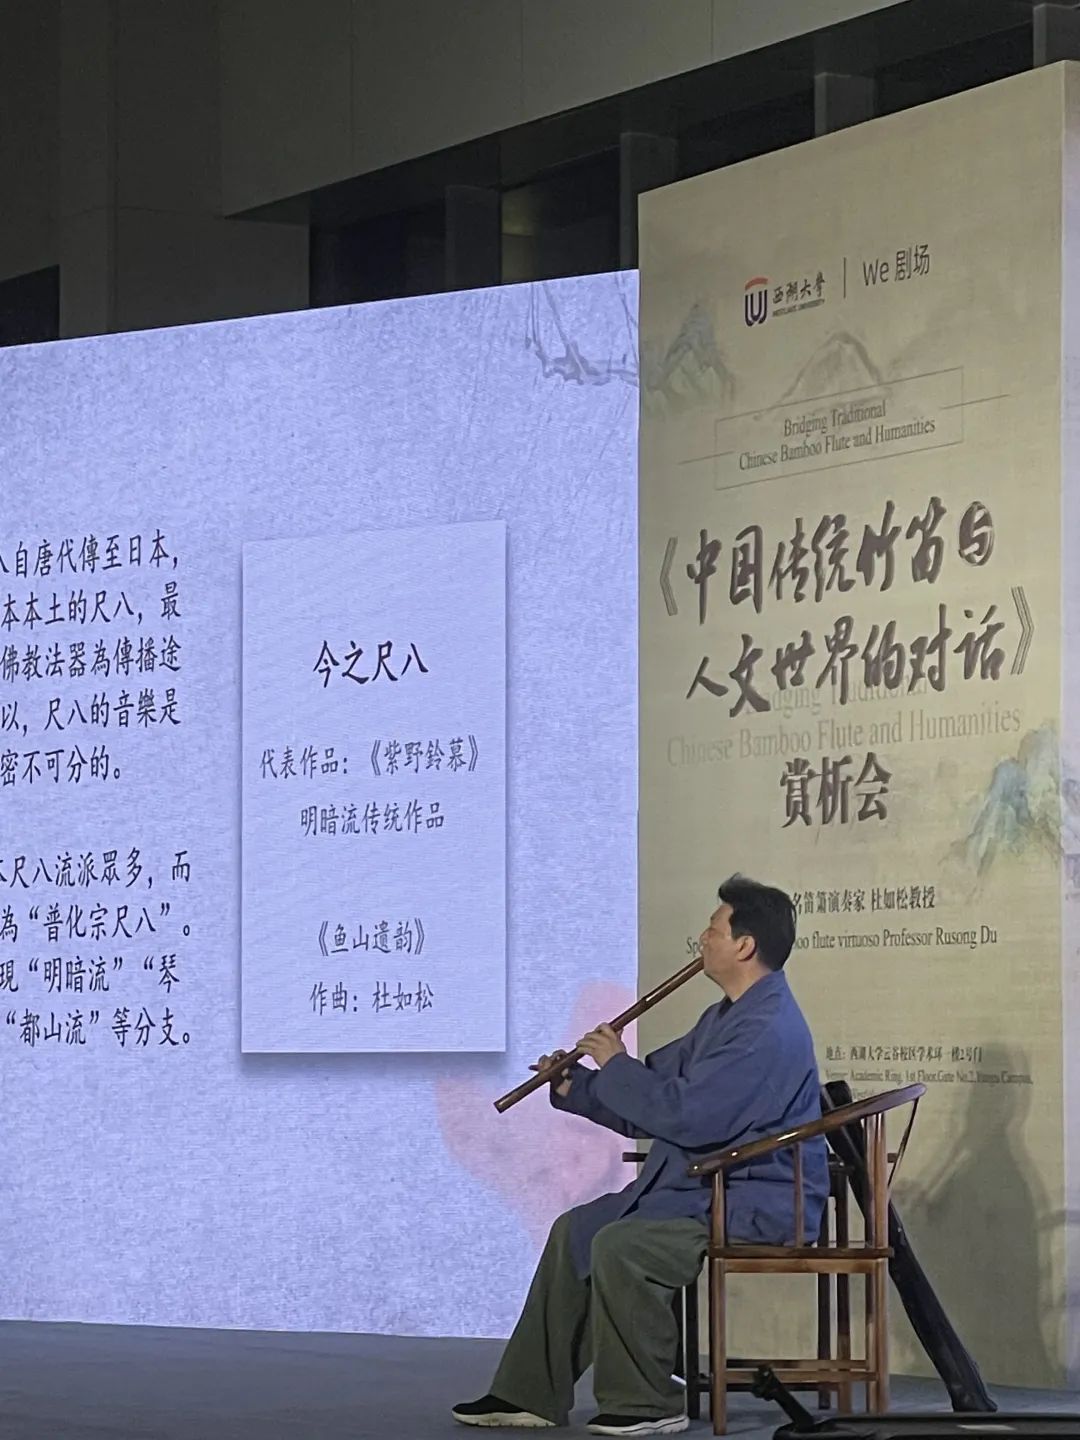 自唐代傳至日本，
本本土的尺八，最
佛教法器為傳播途
以，尺八的音樂是
密不可分的。
尺八流派眾多，而
為“普化宗尺八”。
現“明暗流”“琴
“都山流”等分支。
今之尺八
代表作品：《紫野鈴慕》
明暗流传统作品
《鱼山遗韵》
作曲：杜如松
西湖大學
WESTLAKE UNIVERSITY
We 剧场
Bridging Traditional
Chinese Bamboo Flute and Humanities
《中国传统竹笛与
人文世界的对话》
Bridging Traditional
Chinese Bamboo Flute and Humanities
赏析会
名笛箫演奏家 杜如松教授
flute virtuoso Professor Rusong Du
地点：西湖大学云谷校区学术环一楼2号门
Venue: Academic Ring, 1st Floor,Gate No.2,Yungu Campus,